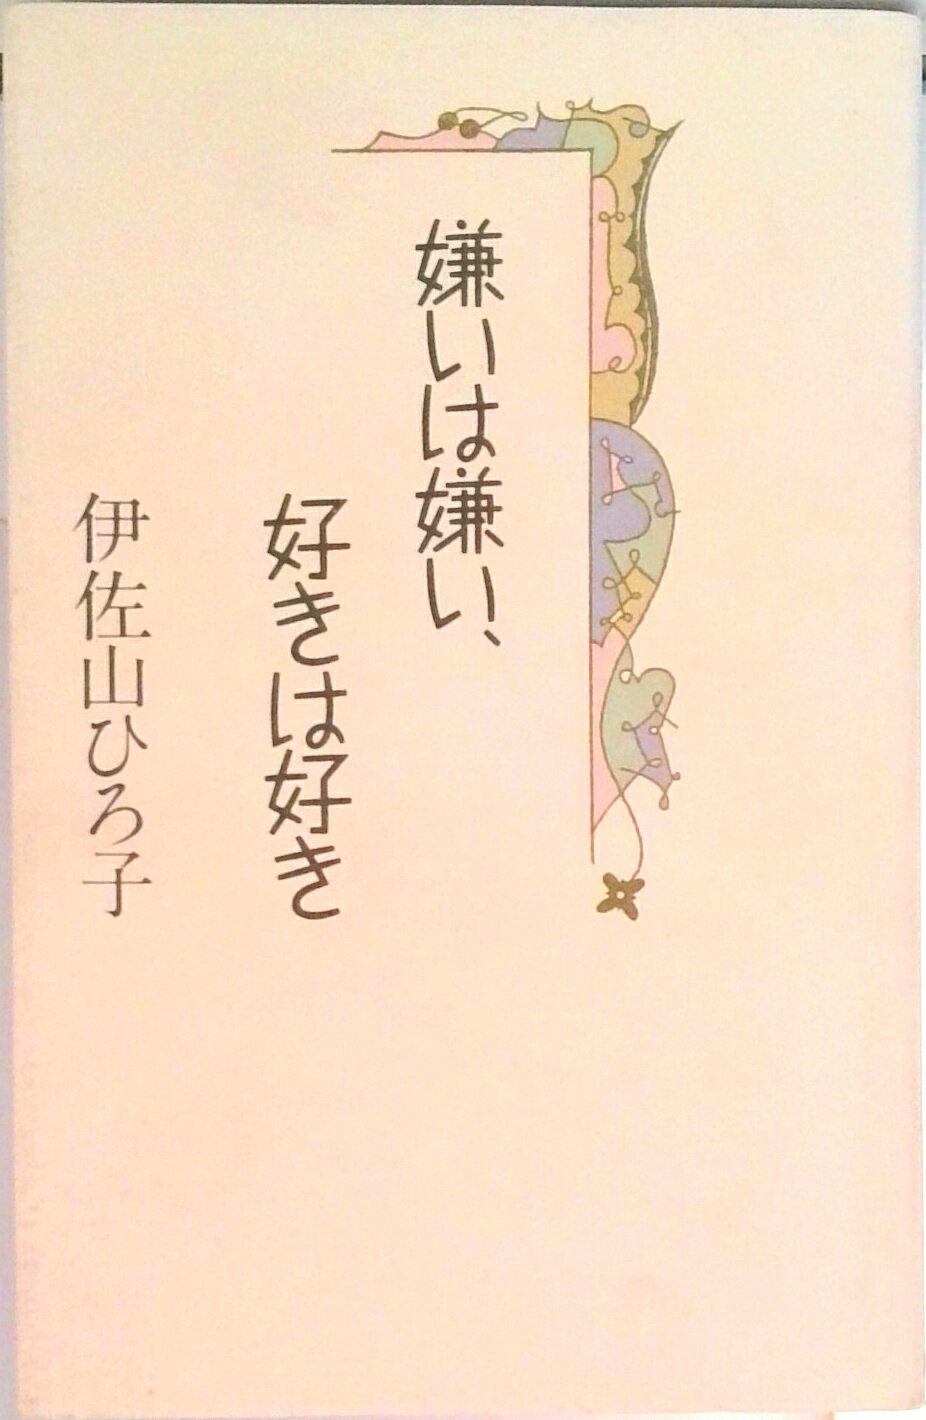 嫌いは嫌い、
好きは好き
伊佐山ひろ子